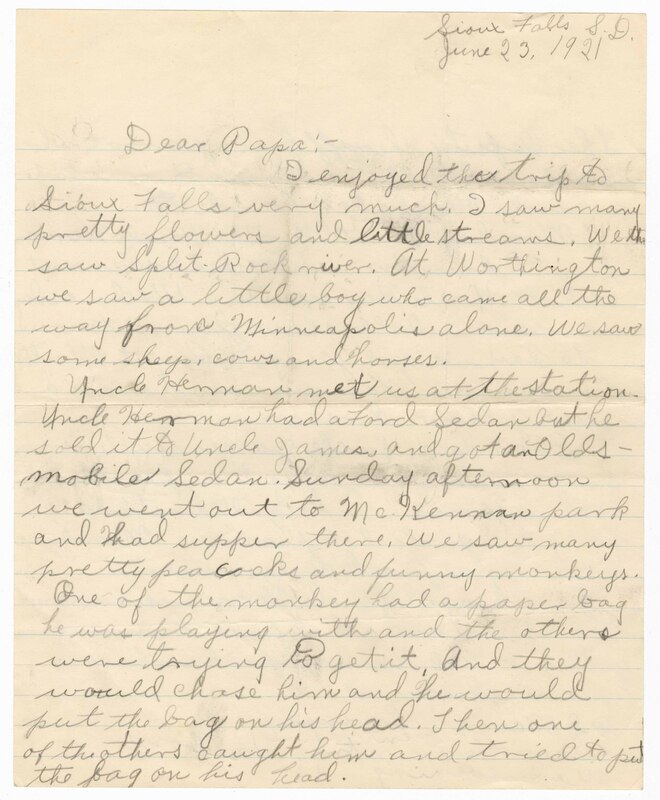 Sioux Falls S.D.
June 23, 1921
Dear Papa:-
I enjoyed the trip to
Sioux Falls very much. I saw many
pretty flowers and little streams. We
saw Split-Rock river. At Worthington
we saw a little boy who came all the
way from Minneapolis alone. We saw
some sheep, cows and horses.
Uncle Herman met us at the station.
Uncle Herman had a Ford Sedan but he
sold it to Uncle James, and got an Olds-
mobile Sedan. Sunday afternoon
we went out to Mc.Kennan park
and had supper there. We saw many
pretty peacocks and funny monkeys.
One of the monkey had a paper bag
he was playing with and the others
were trying to get it. And they
would chase him and he would
put the bag on his head. Then one
of the others caught him and tried to put
the bag on his head.